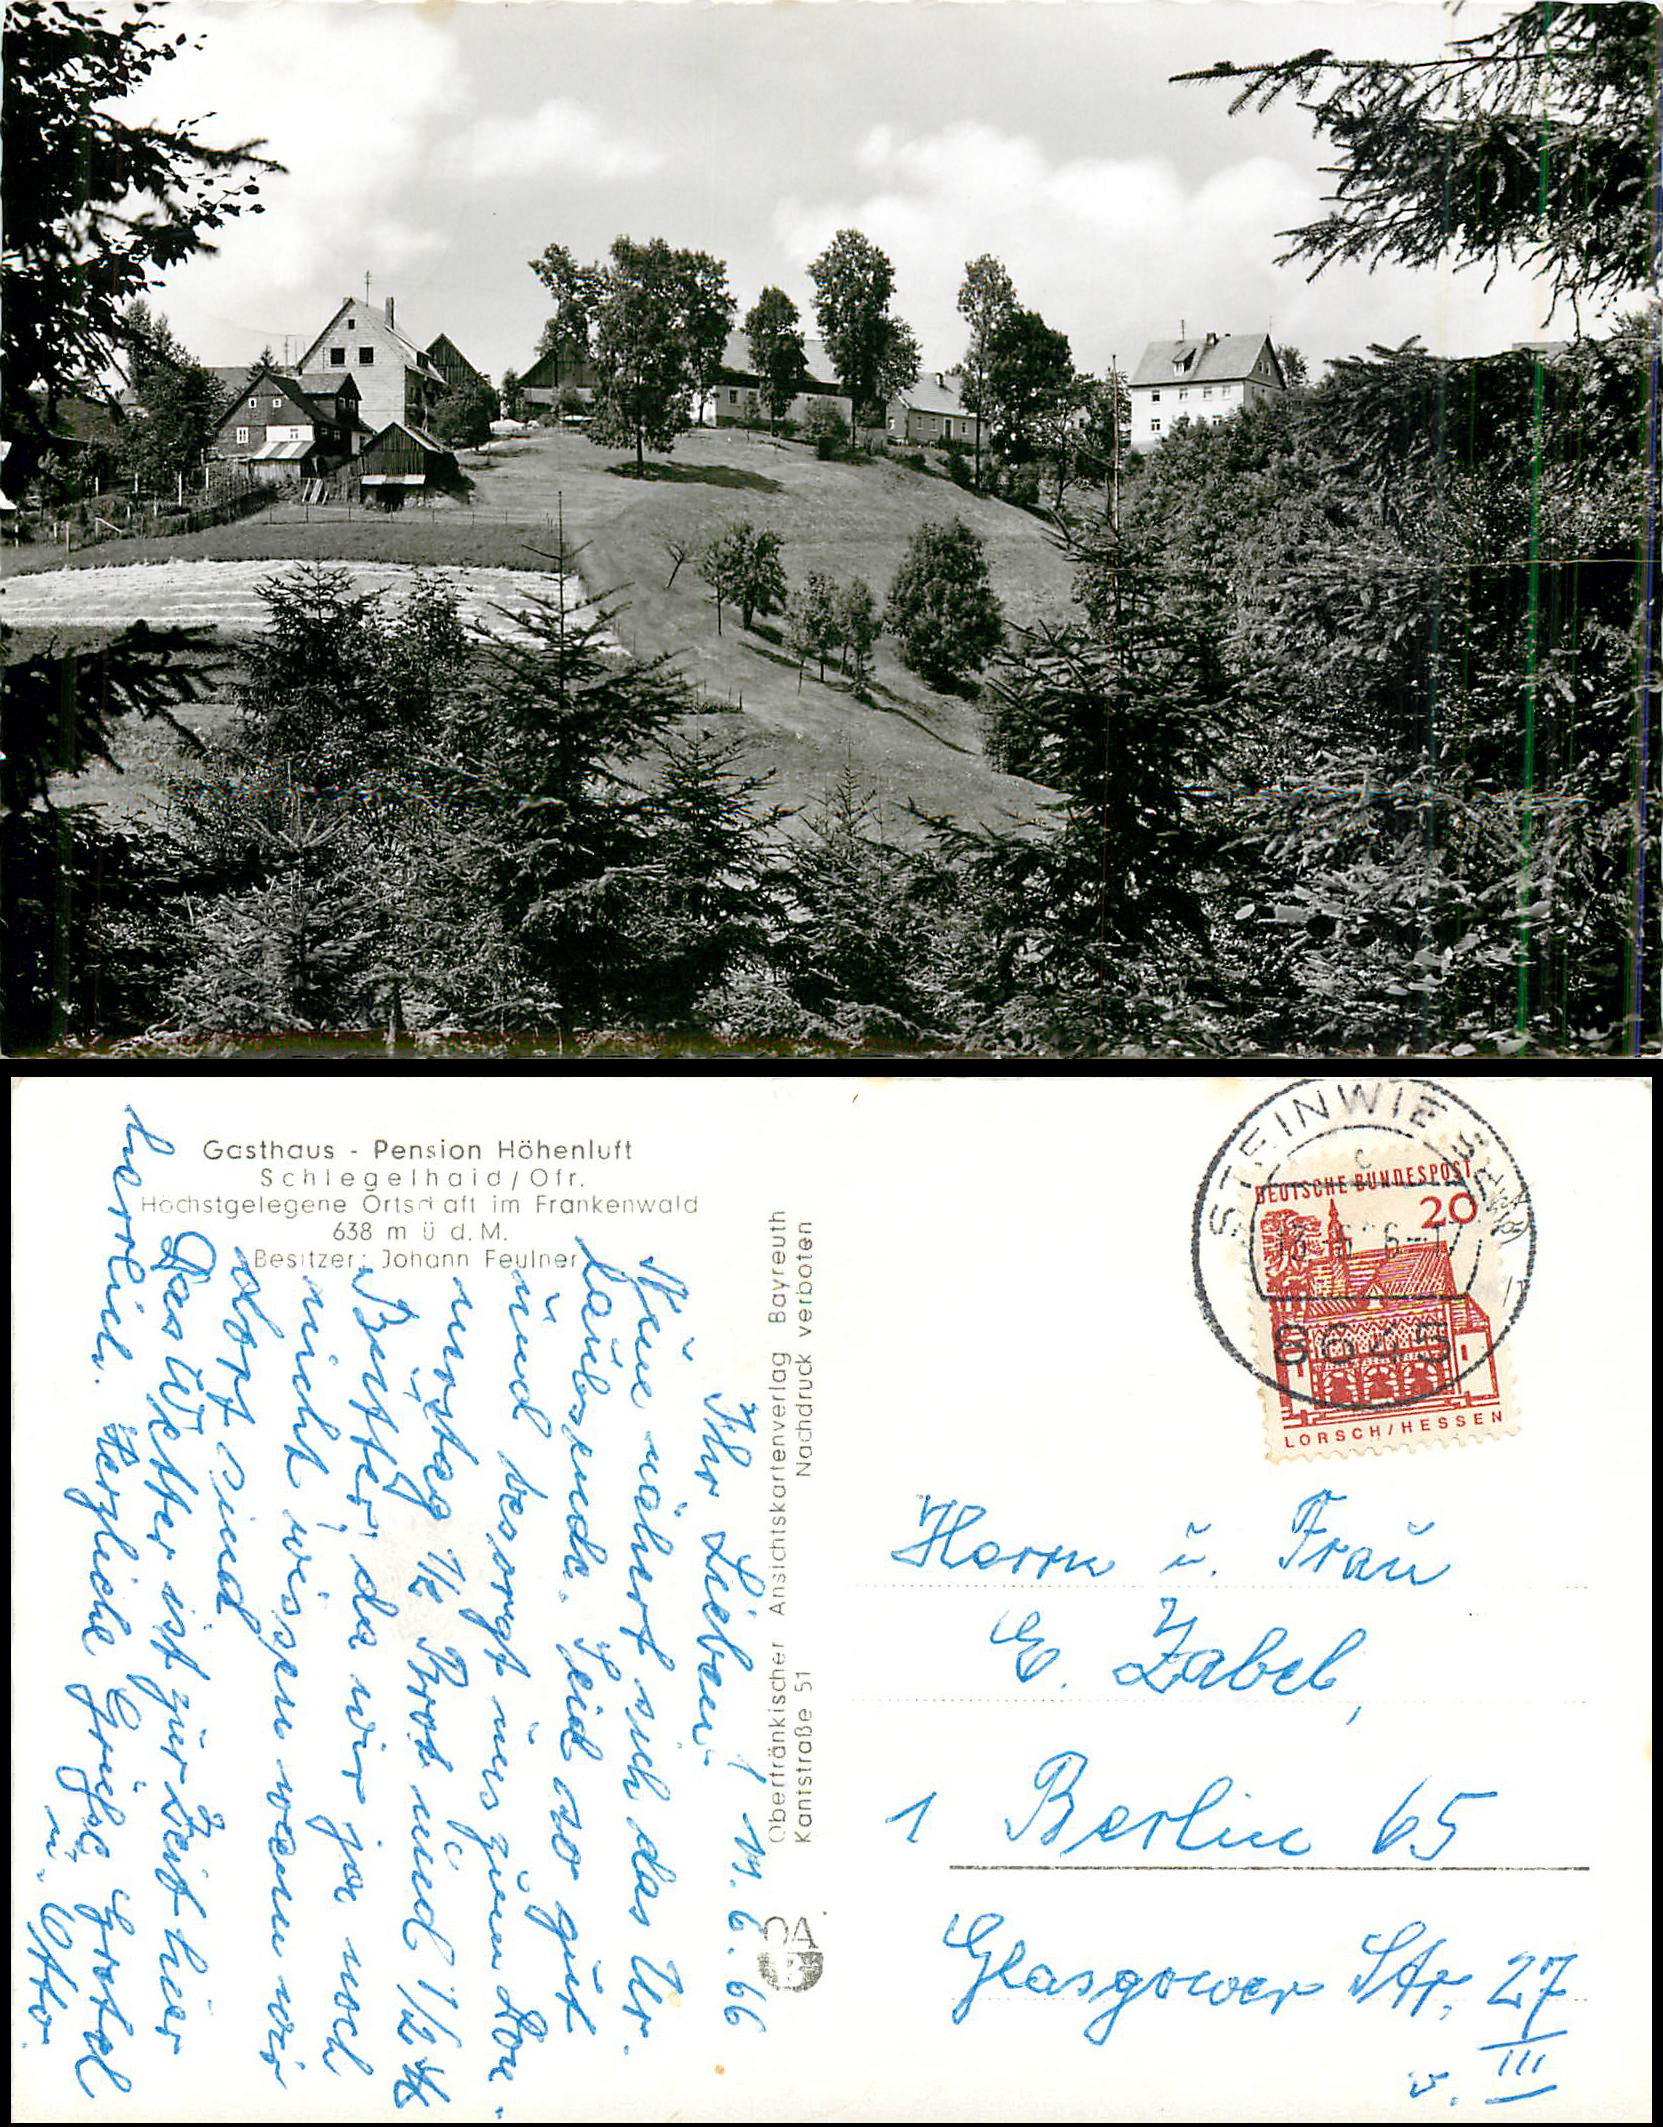 Gasthaus - Pension Höhenluft
Schlegelhaid/Ofr.
Höchstgelegene Ortschaft im Frankenwald
638 m ü d. M.
Besitzer: Johann Feulner
Oberfränkischer Ansichtskartenverlag Bayreuth
Kantstraße 51 Nachdruck verboten
OA
B
STEINWIESEN
c
8645
DEUTSCHE BUNDESPOST
20
LORSCH/HESSEN
Herrn u. Frau
E. Zabel,
1 Berlin 65
Glasgower Str. 27
v. III
Ihr Lieben! 11.6.66
Nun nähert sich das Ur-
laubsende. Seid so gut
und besorgt uns zum Don-
nerstag 1/2 Brot und 1/2 ℔
Butter, da wir ja noch
nicht wissen wann wir
dort sind
Das Wetter ist zur Zeit hier
herrlich. Herzliche Grüße Gretel
u. Otto.